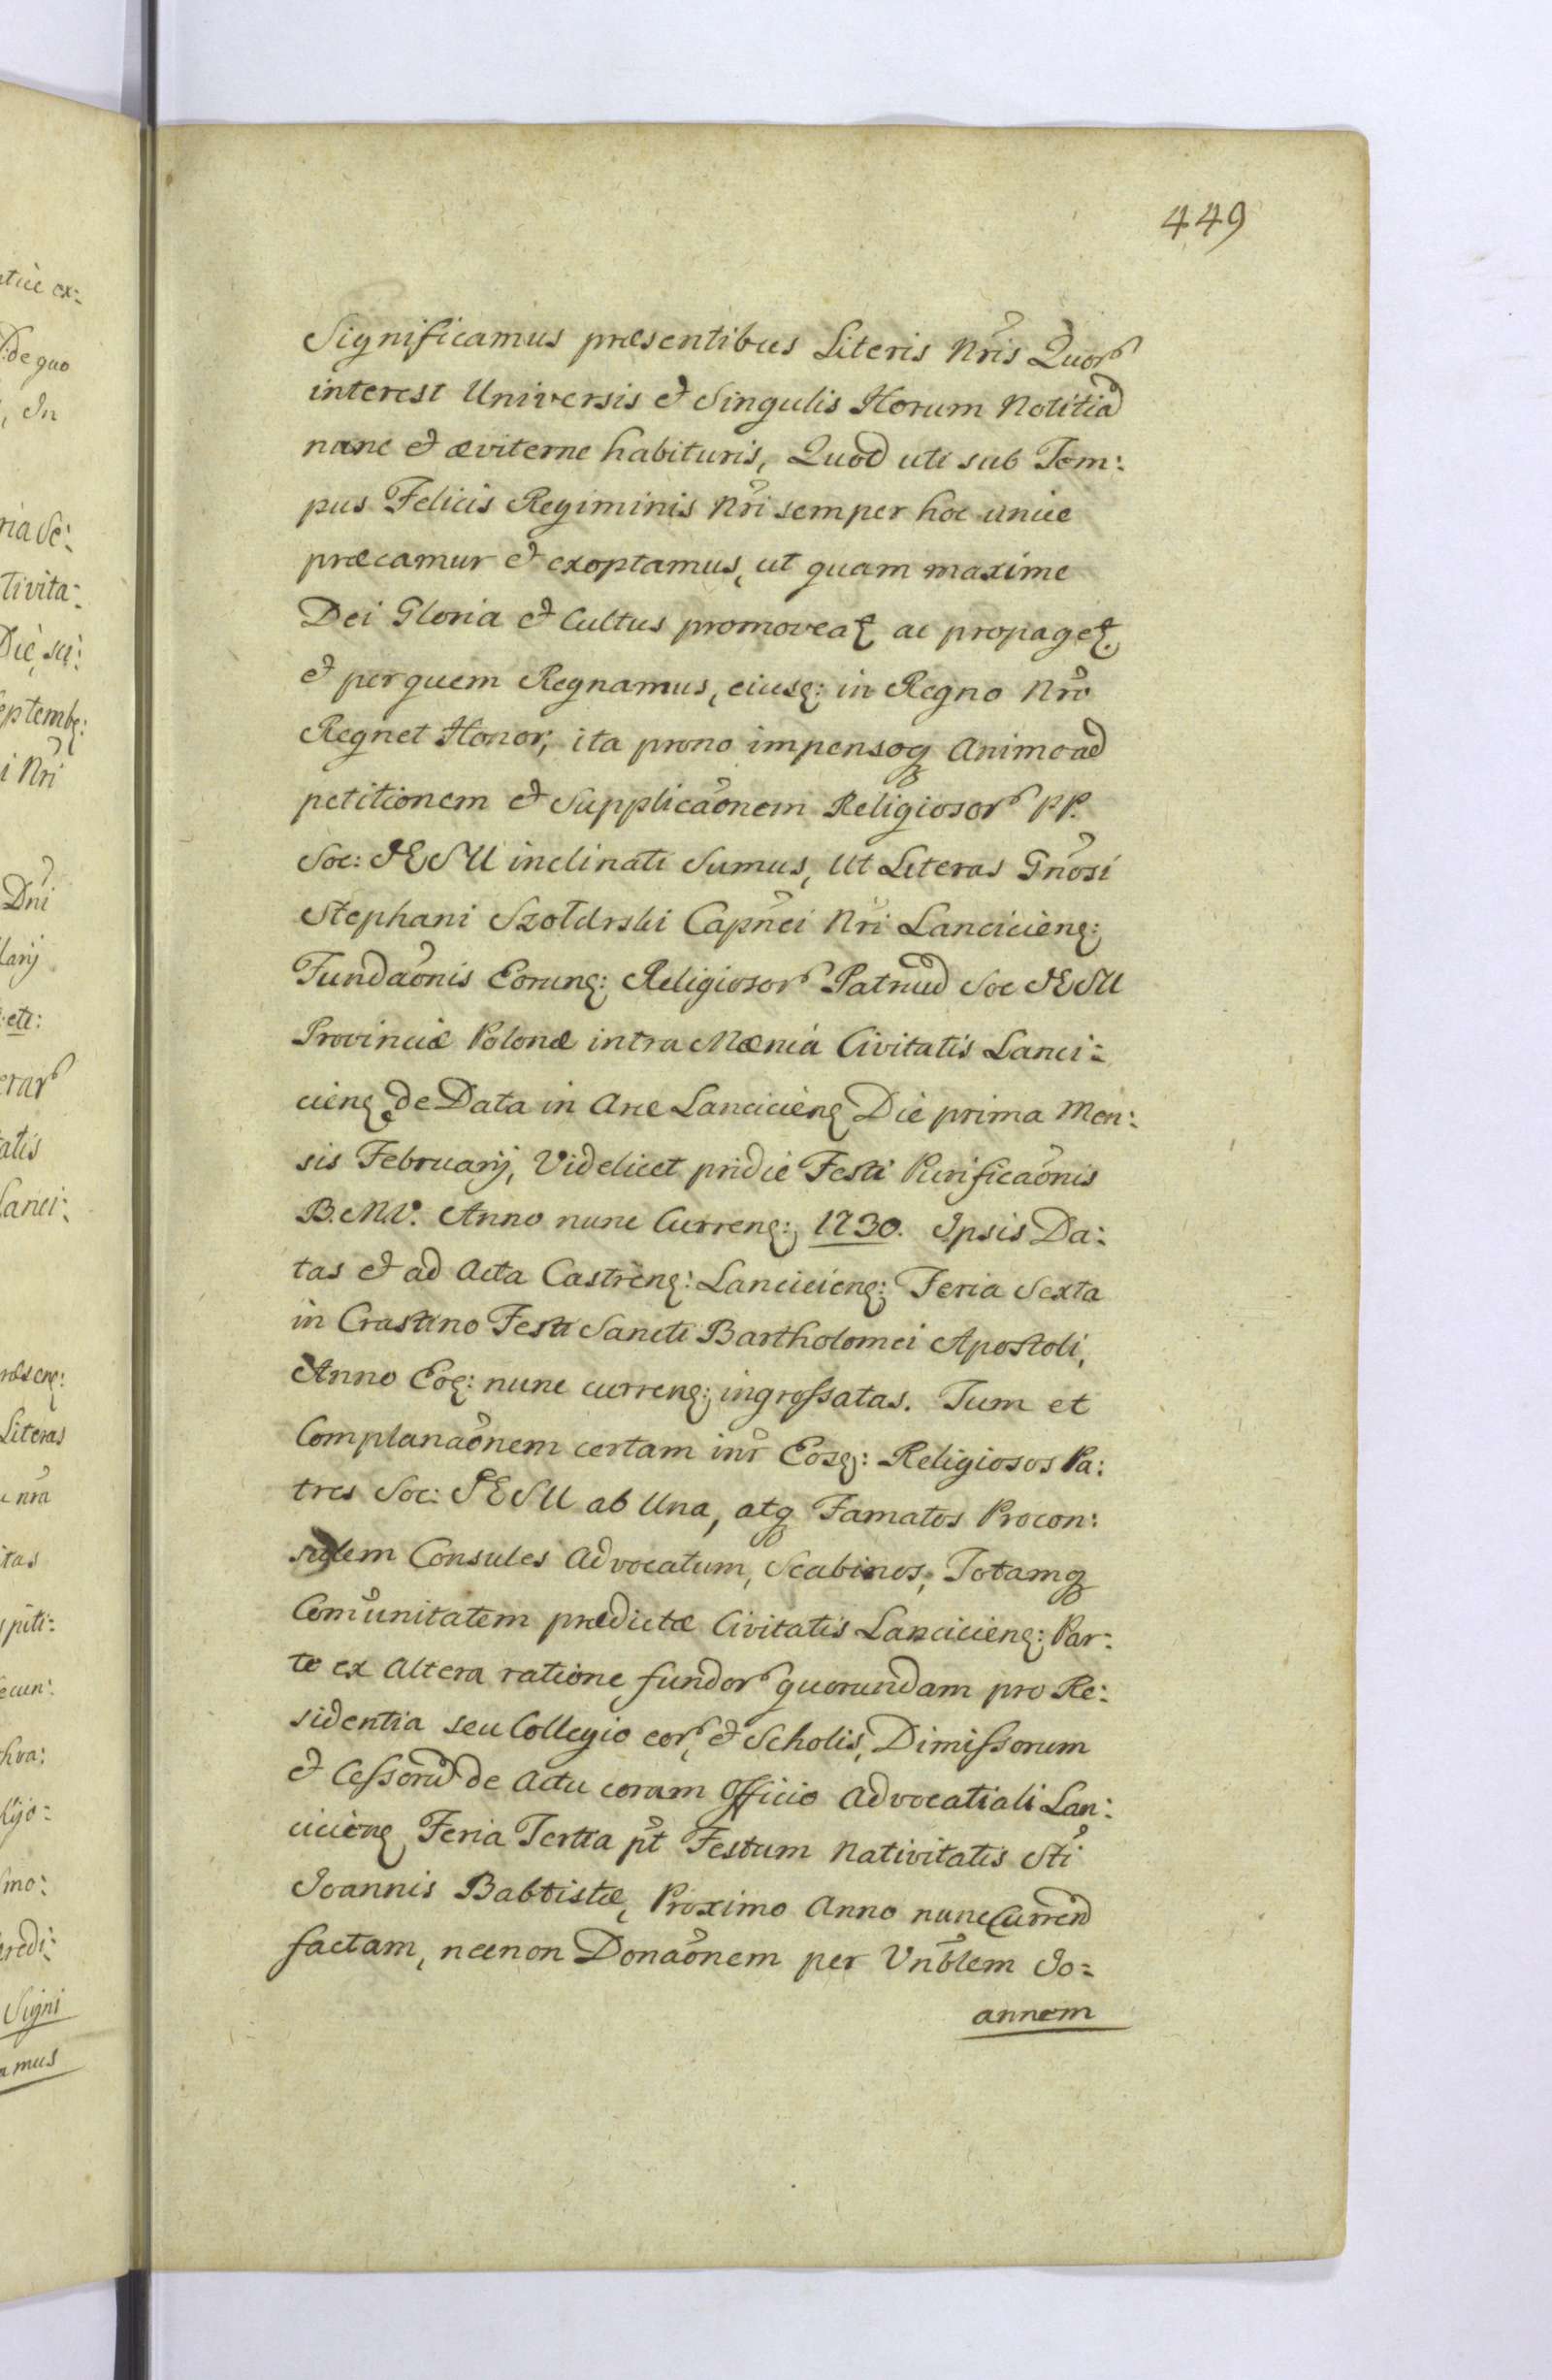 449
Significamus præsentibus Literis Nr̃is Quor
interest Universis et Singulis Horum Notitiã
nunc et æviterne habituris, Quod uti sub Tem:
pus Felicis Regiminis Nr̃i semper hoc unice
præcamur et exoptamus, ut quam maxime
Dei Gloria et Cultus promoveaꝷ ac propageꝷ,
et per quem Regnamus, eiusq: in Regno Nr̃o
Regnet Honor, ita prono impensoq Animo ad
petitionem et Supplicãonem Religiosor PP.
Soc: JESU inclinati Sumus, Ut Literas Gñosi
Stephani Szołdrski Capñei Nr̃i Lanciciens:
Fundãonis Eorunq: Religiosor Patrum Soc JESU
Provinciæ Polonæ intra Mænia Civitatis Lanci=
ciens de Data in Arce Lanciciens Die prima Men:
sis Februarij, Videlicet pridie Festi Purificãonis
B.M.V. Anno nunc Currenꝗ: 1730. Ipsis Da:
tas et ad Acta Castrens: Lanciciens: Feria Sexta
in Crastino Festi Sancti Bartholomei Apostoli,
Anno Eoq: nunc currenꝗ: ingrossatas. Tum et
Complanãonem certam inr̃ Eosq: Religiosos Pa:
tres Soc: JESU ab Una, atq Famatos Procon:
sulem Consules Advocatum, Scabinos, Totamq
Com̃unitatem prædictæ Civitatis Lanciciens: Par:
te ex Altera ratione fundor quorundam pro Re:
sidentia seu Collegio eor, et Scholis, Dimissorum
et Cessorũ de Actu coram Officio Advocatiali Lan:
ciciens Feria Tertia pt̃ Festum Nativitatis St̃i
Joannis Babtistæ, Proximo Anno nunc Currend
factam, necnon Donãonem per Vñblem Jo=
annem